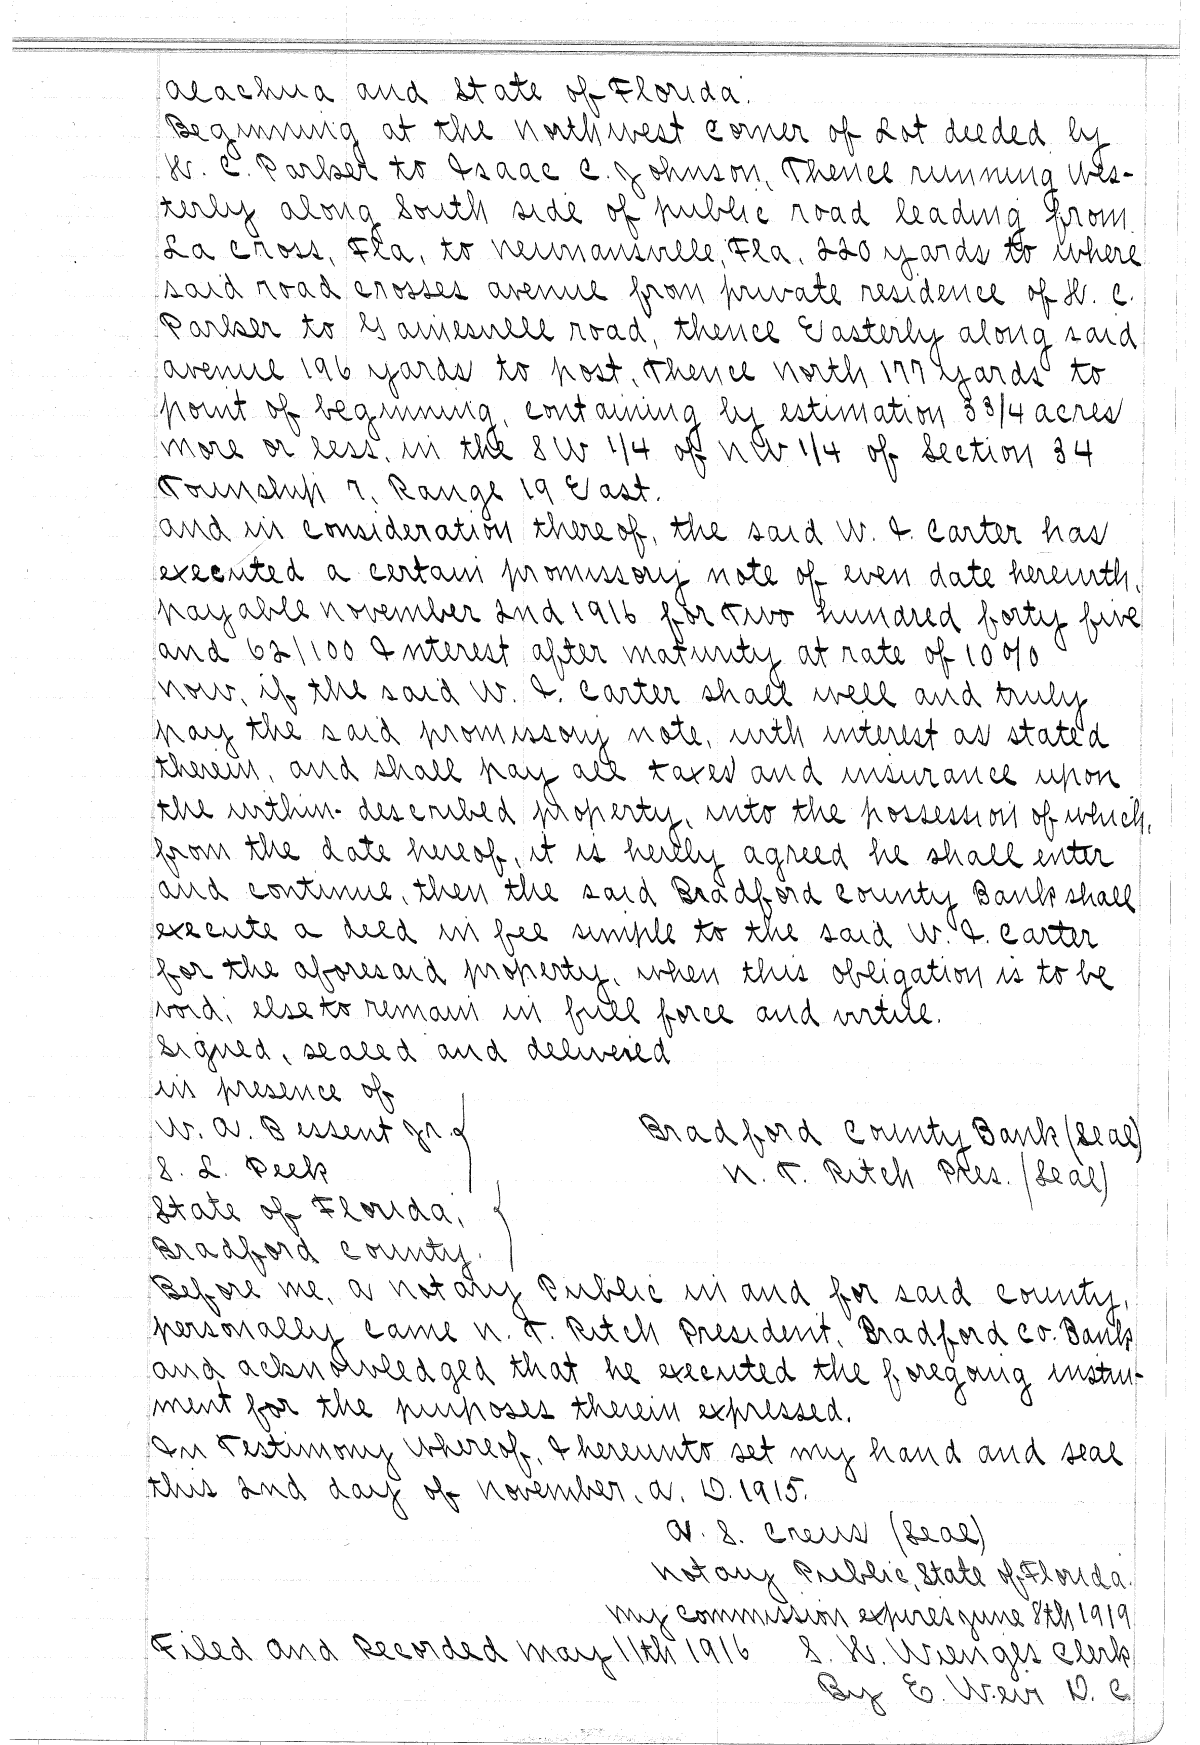 Alachua and State of Florida.
Beginning at the Northwest corner of Lot deeded by
H. C. Parker to Isaac C. Johnson, Thence running Wes-
terly along South side of public road leading from
La Cross, Fla, to Newnansville, Fla, 220 yards to where
said road crosses avenue from private residence of H. C.
Parker to Gainesville road, thence Easterly along said
avenue 196 yards to post, Thence North 177 yards to
point of beginning, containing by estimation 3 3/4 acres
more or less, in the SW 1/4 of NW 1/4 of Section 34
Township 7, Range 19 East.
and in consideration thereof, the said W. I. Carter has
executed a certain promissory note of even date herewith,
payable November 2nd 1916 for Two hundred forty five
and 62/100 Interest after maturity at rate of 10 0/0
Now, if the said W. I. Carter shall well and truly
pay the said promissory note, with interest as stated
therein, and shall pay all taxes and insurance upon
the within-described property, into the possession of which,
from the date hereof, it is hereby agreed he shall enter
and continue, then the said Bradford County Bank shall
execute a deed in fee simple to the said W. I. Carter
for the aforesaid property, when this obligation is to be
void; else to remain in full force and virtue.
Signed, sealed and delivered
in presence of
W. A. Bessent Jr.
S. L. Peek
Bradford County Bank (Seal)
N. T. Ritch Pres. (Seal)
State of Florida,
Bradford County.
Before me, a Notary Public in and for said County,
personally came N. T. Ritch President, Bradford Co. Bank
and acknowledged that he executed the foregoing instru-
ment for the purposes therein expressed.
In Testimony Whereof, I hereunto set my hand and seal
this 2nd day of November, A. D. 1915.
A. S. Crews (Seal)
Notary Public, State of Florida.
My commission expires June 8th 1919
Filed and Recorded May 11th 1916 S. H. Wienges Clerk
By E. Weir D. C.